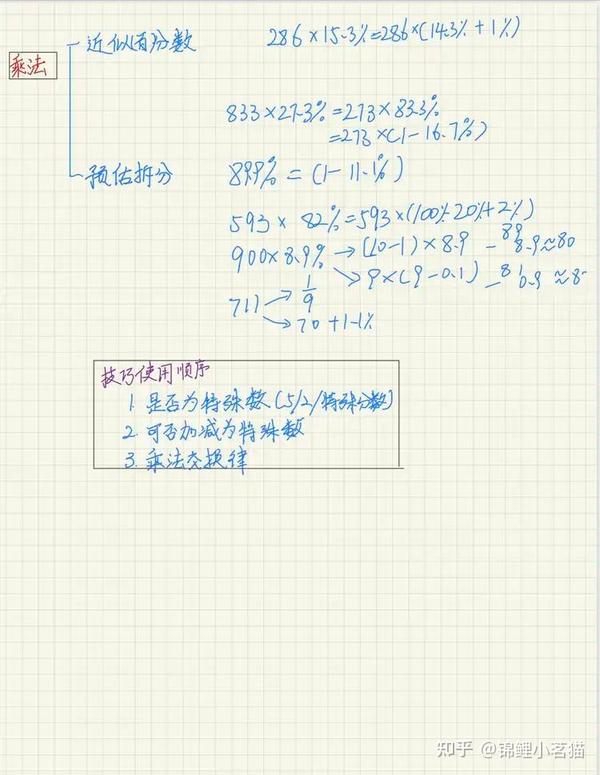 乘法
近似百分数 286×15.3%=286×(14.3%+1%)
833×27.3%=273×83.3%
=273×(1-16.7%)
预估拆分 899%=(1-11.1%)
593×82%=593×(100%-20%+2%)
900×8.9% → (10-1)×8.9 - 89 8.9≈80
→ 9×(9-0.1) - 81 0.9≈8
711 → 1/9
→ 70+1.1%
技巧使用顺序
1. 是否为特殊数(5/2/特殊分数)
2. 可否加减为特殊数
3. 乘法交换律
知乎 @锦鲤小茗猫